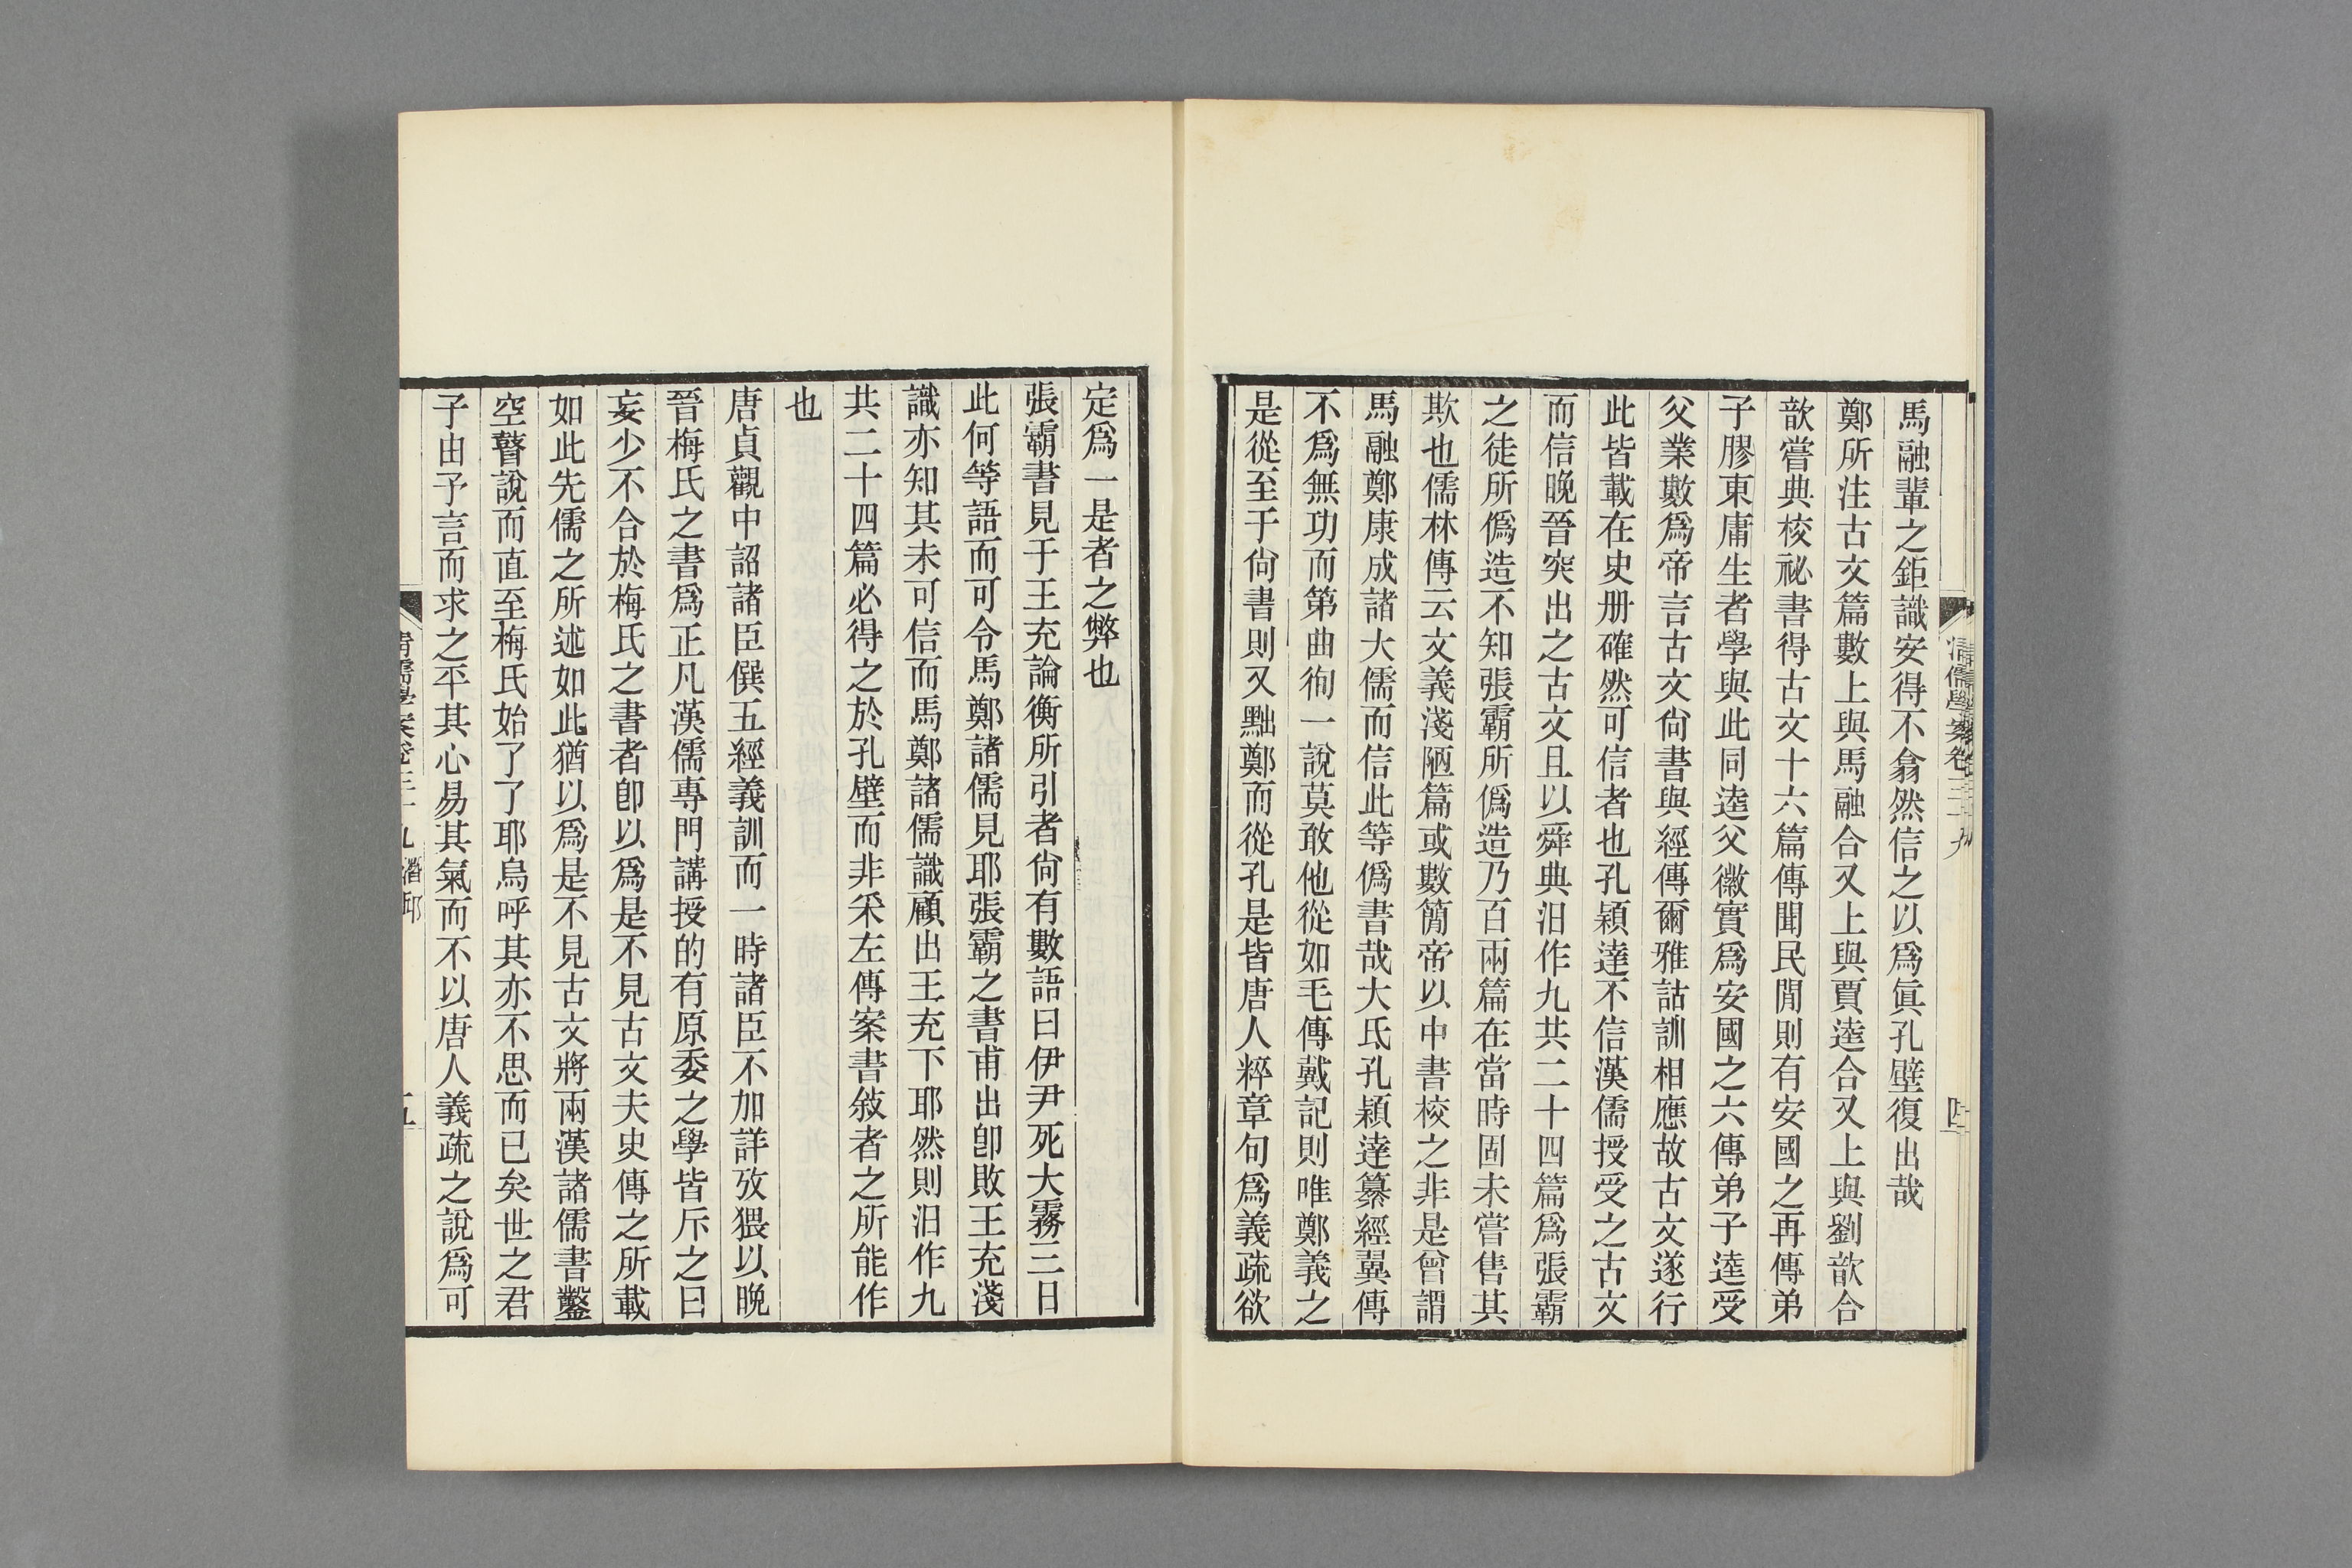 馬融輩之鉅識安得不翕然信之以爲眞孔壁復出哉
鄭所注古文篇數上與馬融合又上與賈逵合又上與劉歆合
歆嘗典校祕書得古文十六篇傳聞民閒則有安國之再傳弟
子膠東庸生者學與此同逵父徽實爲安國之六傳弟子逵受
父業數爲帝言古文尙書與經傳爾雅詁訓相應故古文遂行
此皆載在史册確然可信者也孔穎達不信漢儒授受之古文
而信晚晉突出之古文且以舜典汨作九共二十四篇爲張霸
之徒所僞造不知張霸所僞造乃百兩篇在當時固未嘗售其
欺也儒林傳云文義淺陋篇或數簡帝以中書校之非是曾謂
馬融鄭康成諸大儒而信此等僞書哉大氐孔穎達纂經翼傳
不爲無功而第曲徇一說莫敢他從如毛傳戴記則唯鄭義之
是從至于尙書則又黜鄭而從孔是皆唐人粹章句爲義疏欲
清儒學案卷三十九
四
定爲一是者之弊也
張霸書見于王充論衡所引者尙有數語曰伊尹死大霧三日
此何等語而可令馬鄭諸儒見耶張霸之書甫出卽敗王充淺
識亦知其未可信而馬鄭諸儒識顧出王充下耶然則汨作九
共二十四篇必得之於孔壁而非采左傳案書敍者之所能作
也
唐貞觀中詔諸臣僎五經義訓而一時諸臣不加詳攷猥以晚
晉梅氏之書爲正凡漢儒專門講授的有原委之學皆斥之曰
妄少不合於梅氏之書者卽以爲是不見古文夫史傳之所載
如此先儒之所述如此猶以爲是不見古文將兩漢諸儒書鑿
空瞽說而直至梅氏始了了耶烏呼其亦不思而已矣世之君
子由予言而求之平其心易其氣而不以唐人義疏之說爲可
清儒學案卷三十九 潛邱
五